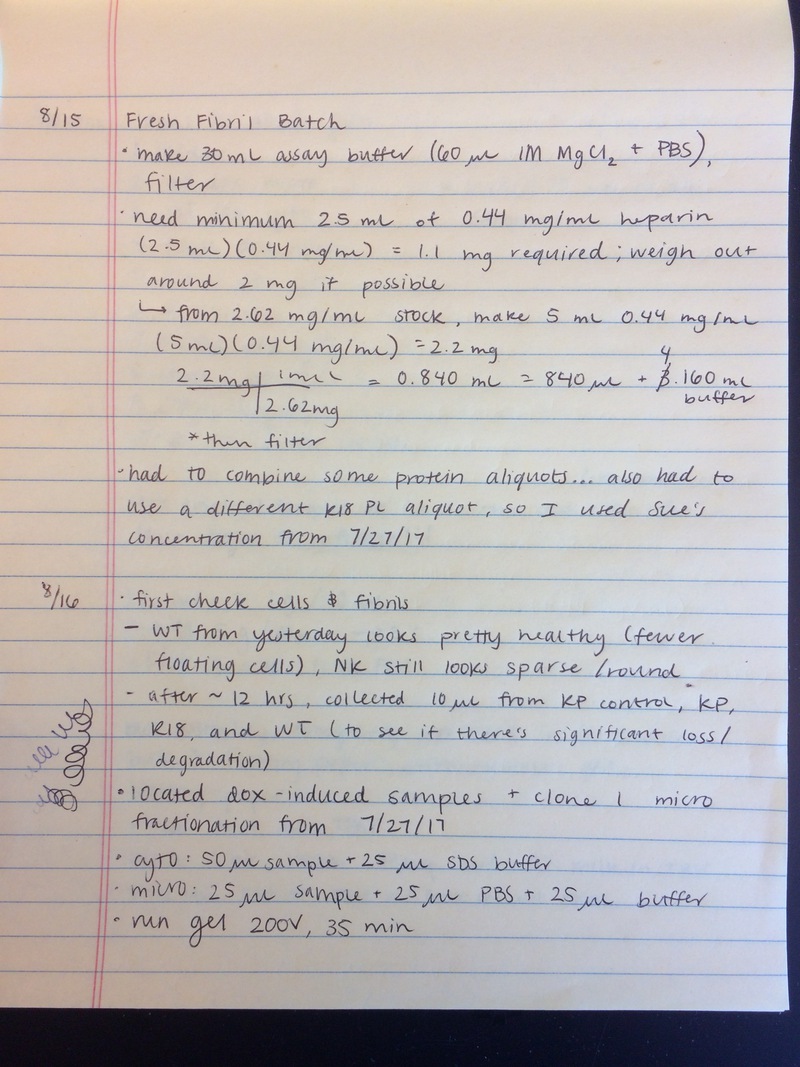 8/15 Fresh Fibril Batch
· make 30 mL assay buffer (60 µL 1M MgCl2 + PBS),
filter
· need minimum 2.5 mL of 0.44 mg/mL heparin
(2.5 mL)(0.44 mg/mL) = 1.1 mg required; weigh out
around 2 mg if possible
↳ from 2.62 mg/mL stock, make 5 mL 0.44 mg/mL
(5 mL)(0.44 mg/mL) = 2.2 mg
4
2.2mg | 1mL = 0.840 mL = 840 µL + 3.160 mL
| 2.62mg buffer
*then filter
· had to combine some protein aliquots... also had to
use a different K18 PL aliquot, so I used Sue's
concentration from 7/27/17
8/16 · first check cells & fibrils
- WT from yesterday looks pretty healthy (fewer
floating cells), NK still looks sparse/round
- after ~ 12 hrs, collected 10 µL from KP control, KP,
K18, and WT (to see if there's significant loss/
degradation)
· located dox-induced samples + clone 1 micro
fractionation from 7/27/17
· cyto: 50 µL sample + 25 µL SDS buffer
· micro: 25 µL sample + 25 µL PBS + 25 µL buffer
· run gel 200V, 35 min